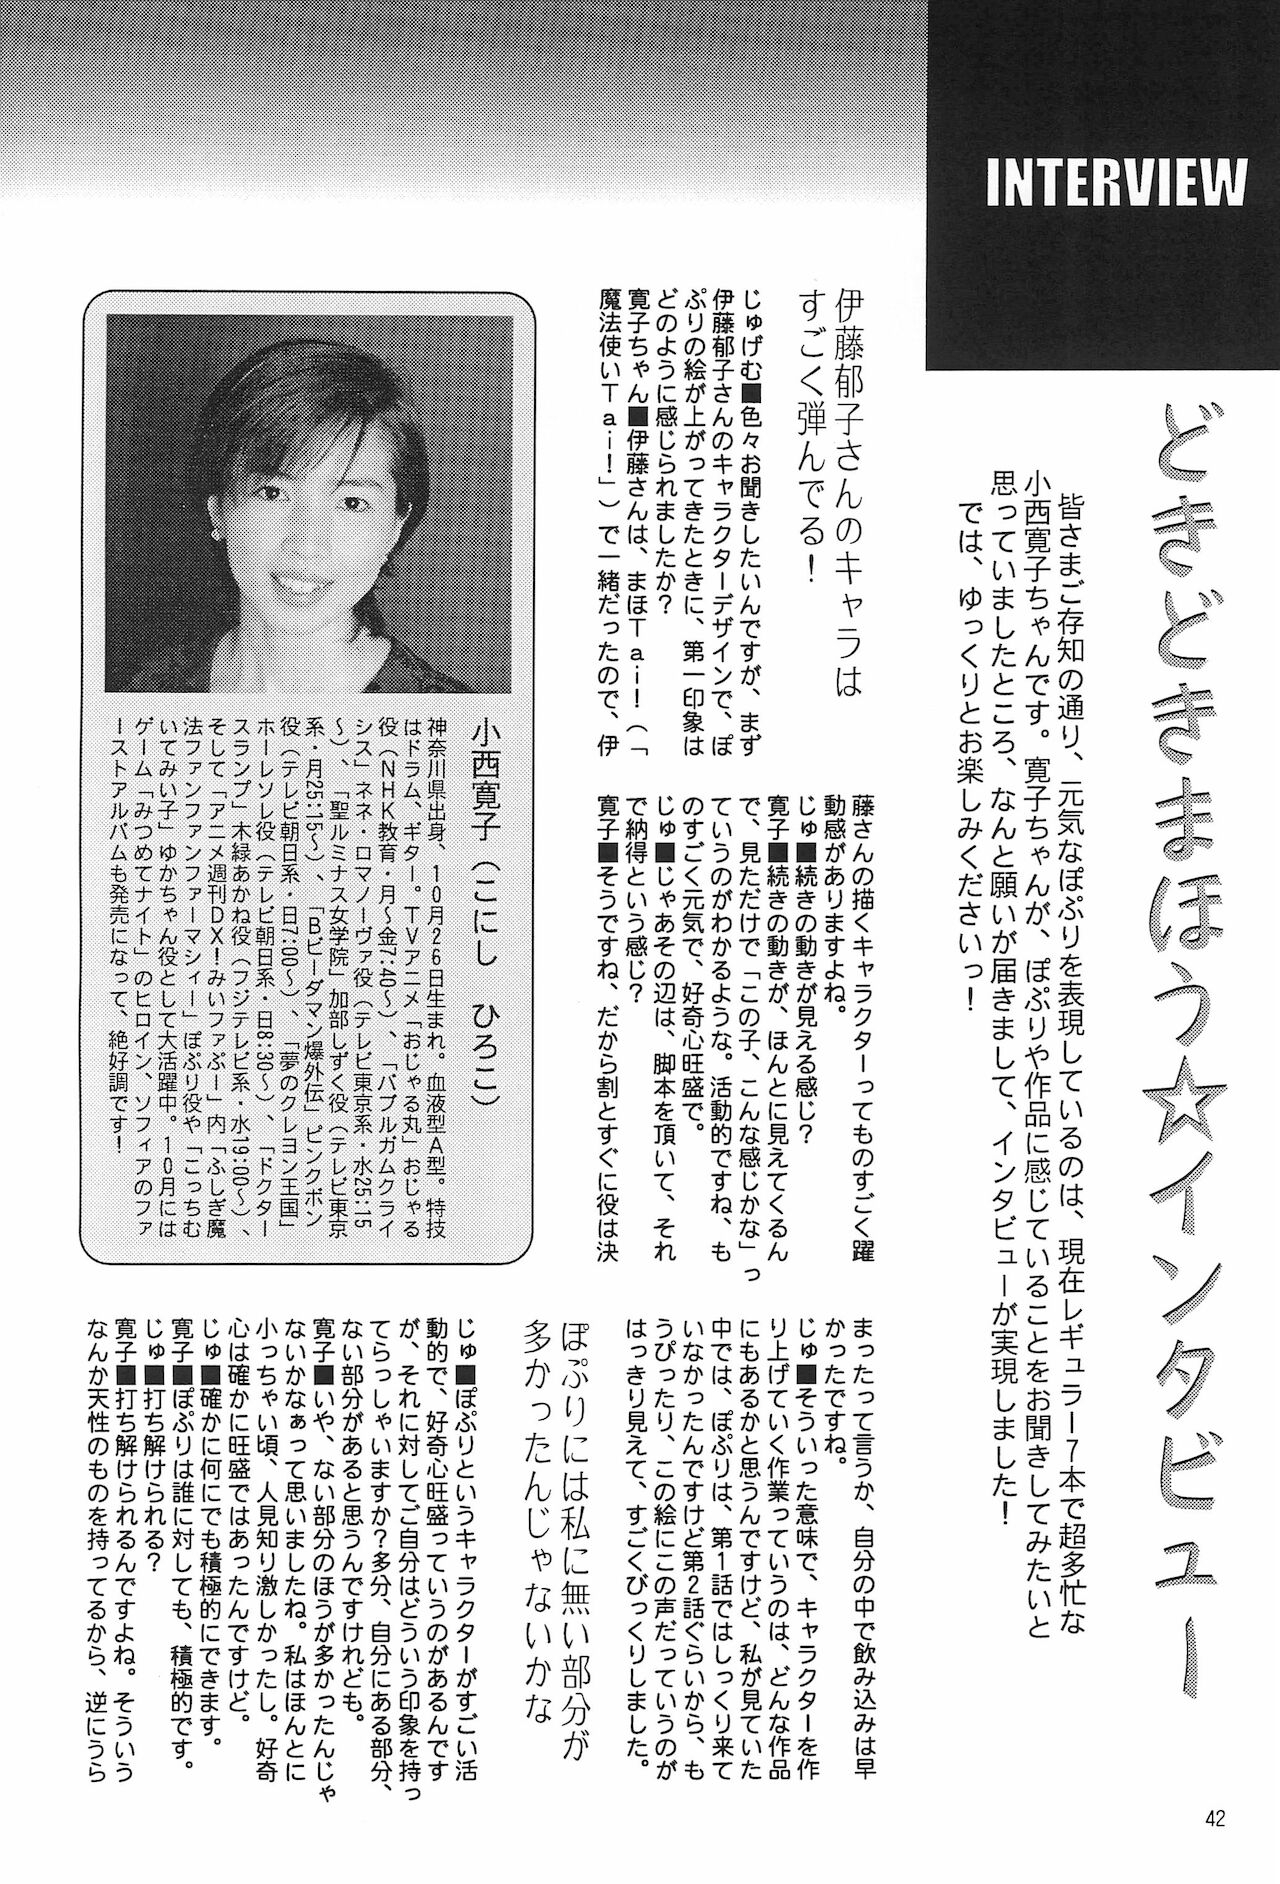 INTERVIEW
どきどきまほう☆インタビュー
皆さまご存知の通り、元気なぽぷりを表現しているのは、現在レギュラー7本で超多忙な
小西寛子ちゃんです。寛子ちゃんが、ぽぷりや作品に感じていることをお聞きしてみたいと
思っていましたところ、なんと願いが届きまして、インタビューが実現しました!
では、ゆっくりとお楽しみくださいっ!
伊藤郁子さんのキャラは
すごく弾んでる!
じゅげむ■色々お聞きしたいんですが、まず
伊藤郁子さんのキャラクターデザインで、ぽ
ぷりの絵が上がってきたときに、第一印象は
どのように感じられましたか?
寛子ちゃん■伊藤さんは、まほTai!(「
魔法使いTai!」)で一緒だったので、伊
藤さんの描くキャラクターってものすごく躍
動感がありますよね。
じゅ■続きの動きが見える感じ?
寛子■続きの動きが、ほんとに見えてくるん
で、見ただけで「この子、こんな感じかな」っ
ていうのがわかるような。活動的ですね、も
のすごく元気で、好奇心旺盛で。
じゅ■じゃあその辺は、脚本を頂いて、それ
で納得という感じ?
寛子■そうですね、だから割とすぐに役は決
まったって言うか、自分の中で飲み込みは早
かったですね。
じゅ■そういった意味で、キャラクターを作
り上げていく作業っていうのは、どんな作品
にもあるかと思うんですけど、私が見ていた
中では、ぽぷりは、第1話ではしっくり来て
いなかったんですけど第2話ぐらいから、も
うぴったり、この絵にこの声だっていうのが
はっきり見えて、すごくびっくりしました。
ぽぷりには私に無い部分が
多かったんじゃないかな
じゅ■ぽぷりというキャラクターがすごい活
動的で、好奇心旺盛っていうのがあるんです
が、それに対してご自分はどういう印象を持っ
てらっしゃいますか?多分、自分にある部分、
ない部分があると思うんですけれども。
寛子■いや、ない部分のほうが多かったんじゃ
ないかなぁって思いましたね。私はほんとに
小っちゃい頃、人見知り激しかったし。好奇
心は確かに旺盛ではあったんですけど。
じゅ■確かに何にでも積極的にできます。
寛子■ぽぷりは誰に対しても、積極的です。
じゅ■打ち解けられる?
寛子■打ち解けられるんですよね。そういう
なんか天性のものを持ってるから、逆にうら
小西寛子(こにし ひろこ)
神奈川県出身、10月26日生まれ。血液型A型。特技
はドラム、ギター。TVアニメ「おじゃる丸」おじゃる
役(NHK教育・月〜金7:40〜)、「バブルガムクライ
シス」ネネ・ロマノーヴァ役(テレビ東京系・水25:15
〜)、「聖ルミナス女学院」加部しずく役(テレビ東京
系・月25:15〜)、「Bビーダマン爆外伝」ピンクボン
役(テレビ朝日系・日7:00〜)、「夢のクレヨン王国」
ホーレソレ役(テレビ朝日系・日8:30〜)、「ドクター
スランプ」木緑あかね役(フジテレビ系・水19:00〜)、
そして「アニメ週刊DX!みいファぷー」内「ふしぎ魔
法ファンファンファーマシィー」ぽぷり役や「こっちむ
いてみい子」ゆかちゃん役として大活躍中。10月には
ゲーム「みつめてナイト」のヒロイン、ソフィアのファ
ーストアルバムも発売になって、絶好調です!
42